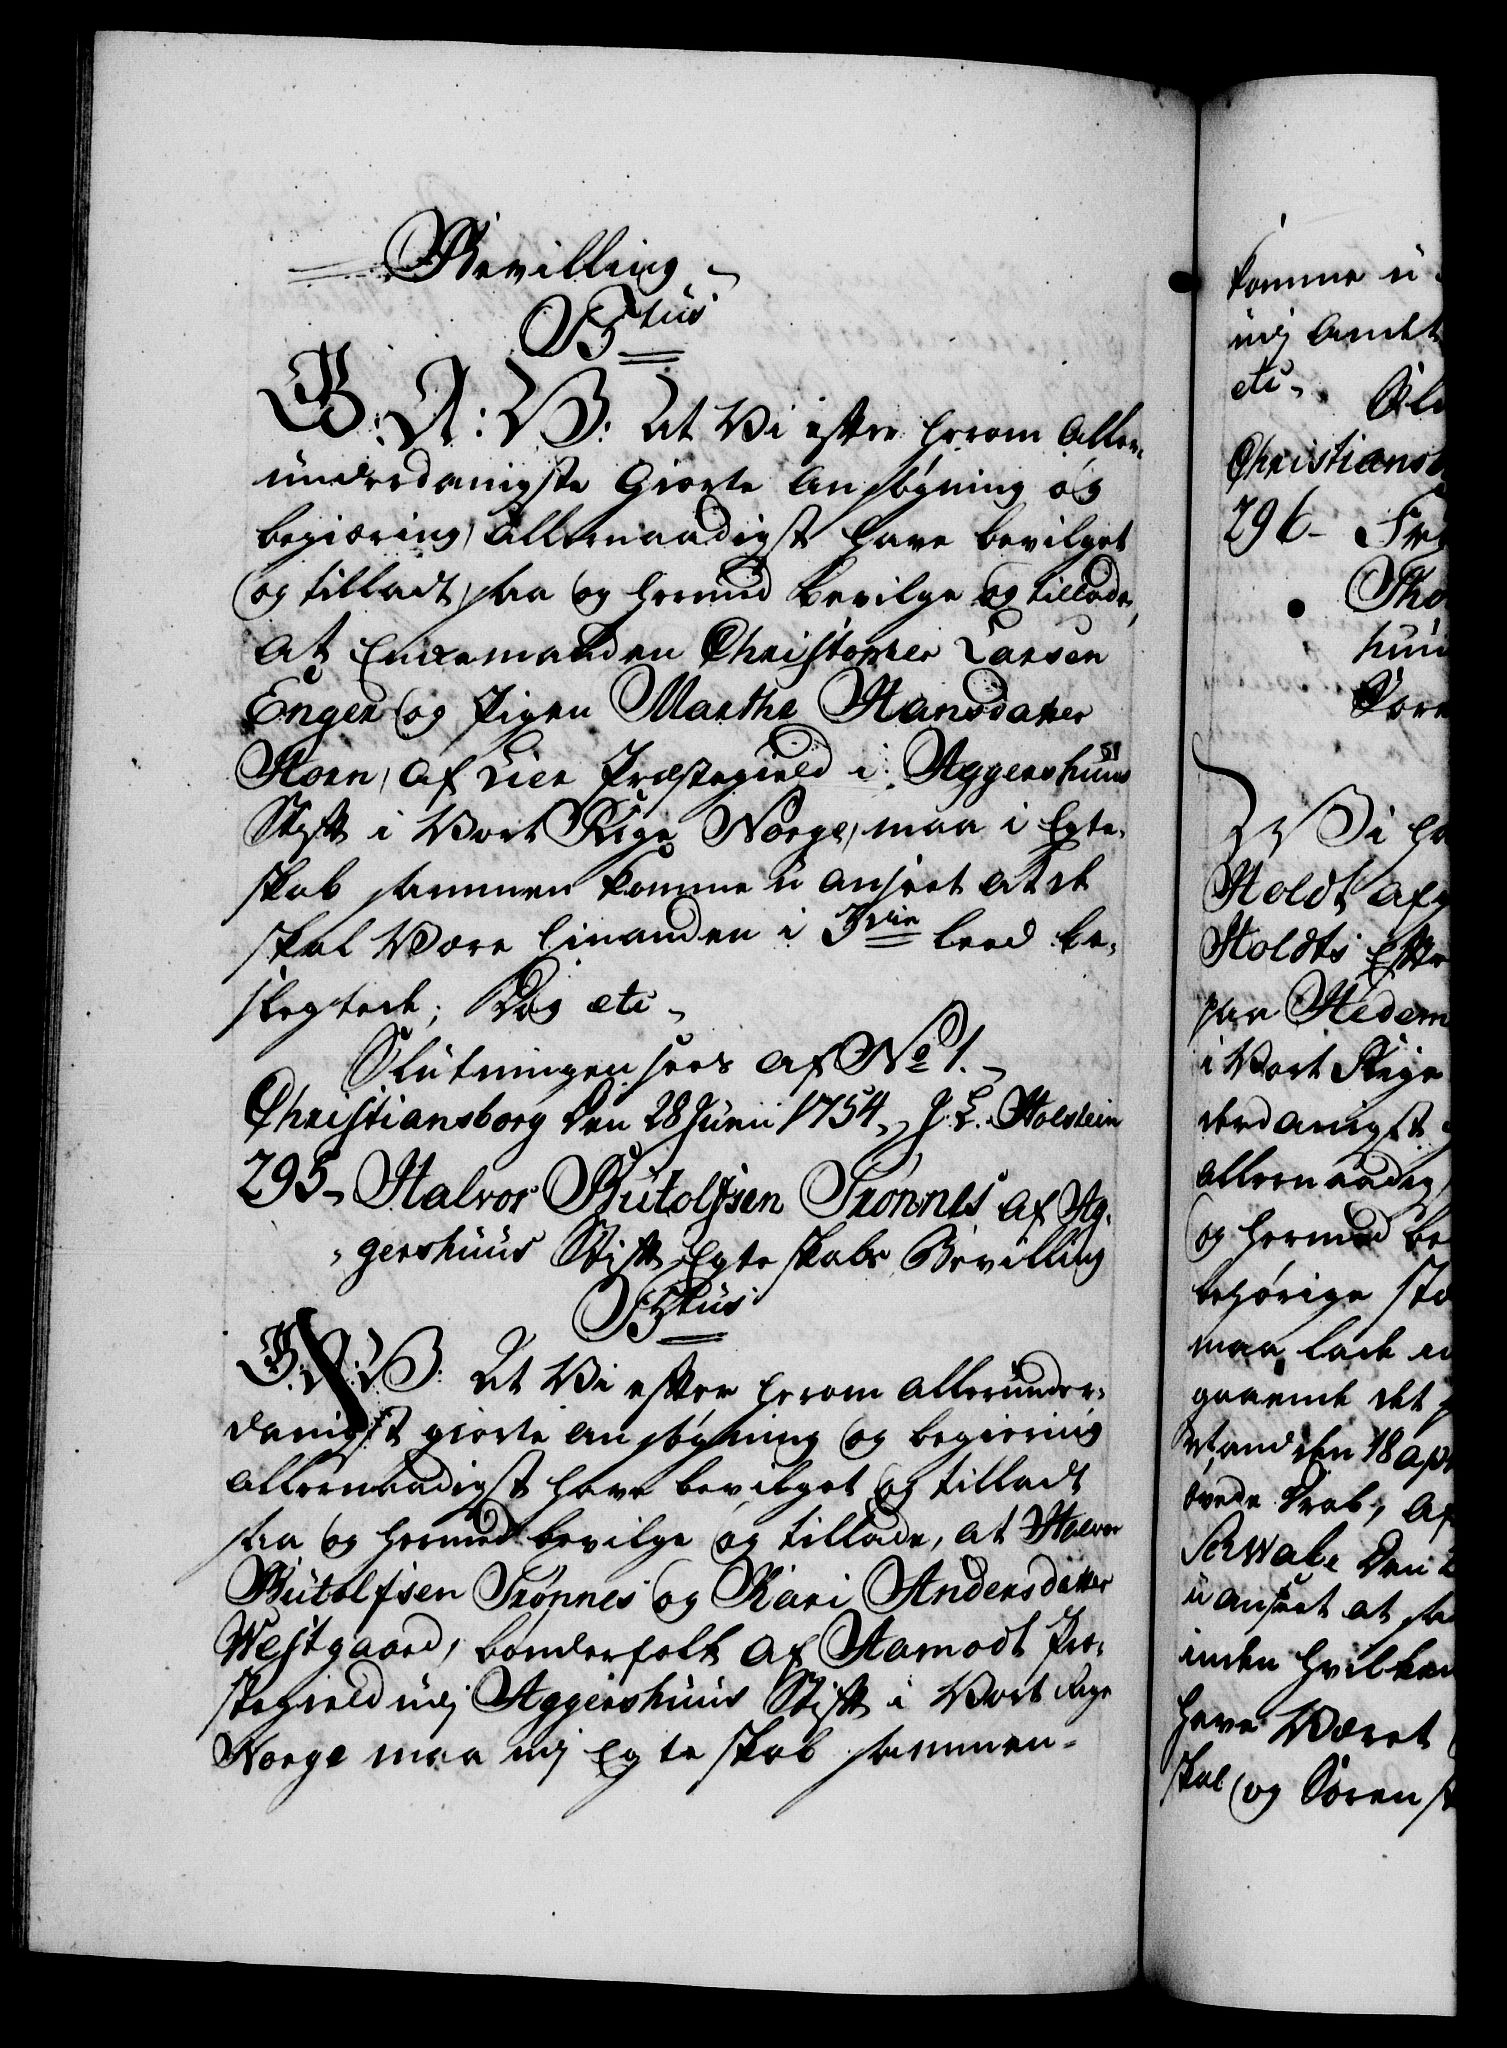 Bevilling
F5tus
G: A: V: At Vi efter herom Aller-
underdanigste Giorte Ansøgning og
begiæring, Allernaadigst have bevilget
og tilladt, saa og hermed bevilge og tillade,
at Enkemanden Christopher Larsen
Enger og Pigen Marthe Hansdatter
Horn, af Lier Præstegield i Aggershuus
Stift i Vort Rige Norge, maa i Egte-
skab sammen komme uanseet at de
skal Være hinanden i 3die Leed be-
slegtede; Dog etc
Slutningen sees af No 1.
Christiansborg den 28 Juni 1754, J. L. Holstein
295 Halvor Butolfsen Trønnes af Ag-
gershuus Stift Egteskabs Bevilling
F5tus
G: A: V: At Vi efter herom allerunder-
danigst giorte Ansøgning og begiering
allernaadigst have bevilget og tilladt
saa og hermed bevilge og tillade, at Halvor
Butolfsen Trønnes og Kari Andersdatter
Westgaard, bønderfolk af Aamodt Præ-
stegield udj Aggershuus Stift i Vort Rige
Norge maa udj Egteskab sammen-
komme u
udj andet
etc
Christians
296
Vi ha
Holdt af
Holdts Efter
paa Hedem
i Vort Rige
derdanigst
allernaadig
og hermed be
behørige ste
maa lade
gaaende det
Stand den 18 apr
øvede Drab, af
Schwabe den
uanseet at
inden hvilken
have Været
skal og Søren